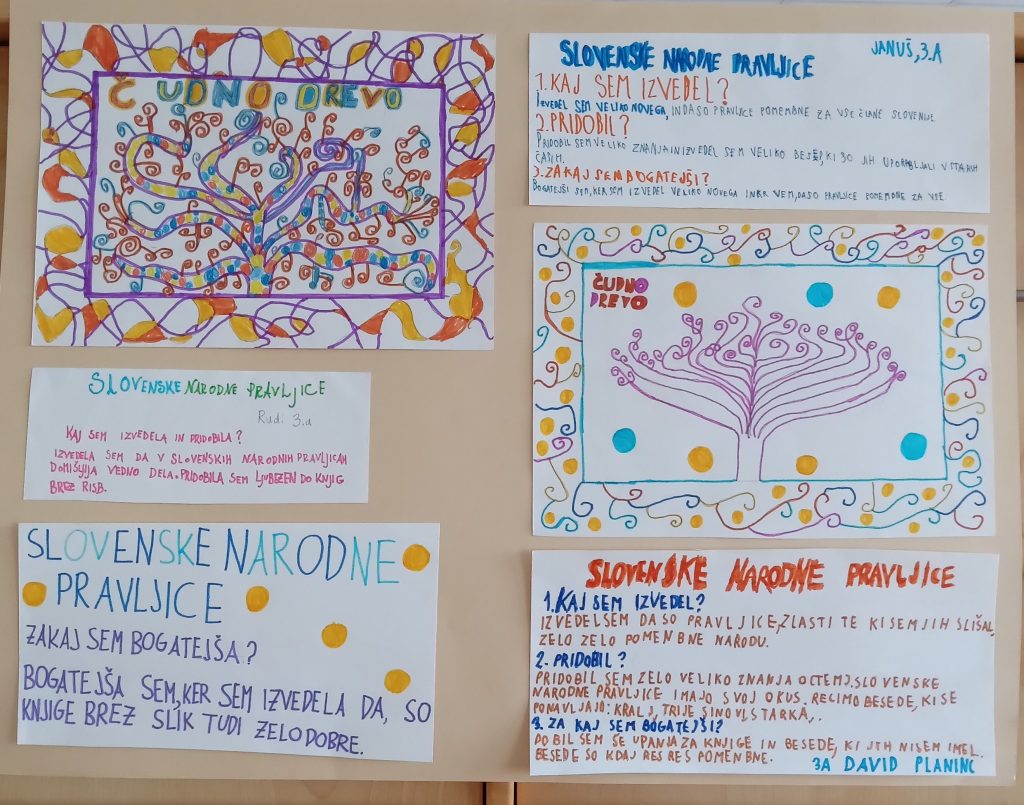 ČUDNO DREVO
SLOVENSKE NARODNE PRAVLJICE
Rudi 3.a
KAJ SEM IZVEDELA IN PRIDOBILA?
IZVEDELA SEM DA V SLOVENSKIH NARODNIH PRAVLJICAH
DOMIŠLJIJA VEDNO DELA. PRIDOBILA SEM LJUBEZEN DO KNJIG
BREZ RISB.
SLOVENSKE NARODNE
PRAVLJICE
ZAKAJ SEM BOGATEJŠA?
BOGATEJŠA SEM, KER SEM IZVEDELA DA, SO
KNJIGE BREZ SLIK TUDI ZELO DOBRE.
SLOVENSKE NARODNE PRAVLJICE
JANUŠ, 3.A
1. KAJ SEM IZVEDEL?
IZVEDEL SEM VELIKO NOVEGA, IN DA SO PRAVLJICE POMEMBNE ZA VSE ČLANE SLOVENIJE.
2. PRIDOBIL?
PRIDOBIL SEM VELIKO ZNANJA IN IZVEDEL SEM VELIKO BESED, KI SO JIH UPORABLJALI V STARIH
ČASIH.
3. ZAKAJ SEM BOGATEJŠI?
BOGATEJŠI SEM, KER SEM IZVEDEL VELIKO NOVEGA IN KER VEM, DA SO PRAVLJICE POMEMBNE ZA VSE.
ČUDNO
DREVO
SLOVENSKE NARODNE PRAVLJICE
1. KAJ SEM IZVEDEL?
IZVEDEL SEM DA SO PRAVLJICE, ZLASTI TE KI SEM JIH SLIŠAL,
ZELO ZELO POMENBNE NARODU.
2. PRIDOBIL?
PRIDOBIL SEM ZELO VELIKO ZNANJA O CTEMJ. SLOVENSKE
NARODNE PRAVLJICE IMAJO SVOJ OKUS. RECIMO BESEDE, KI SE
PONAVLJAJO: KRALJ, TRIJE SINOVI, STARKA,.
3. ZA KAJ SEM BOGATEJŠI?
DOBIL SEM ŠE UPANJA ZA KNJIGE IN BESEDE, KI JIH NISEM IMEL.
BESEDE SO KDAJ RES RES POMENBNE.
3A DAVID PLANINC